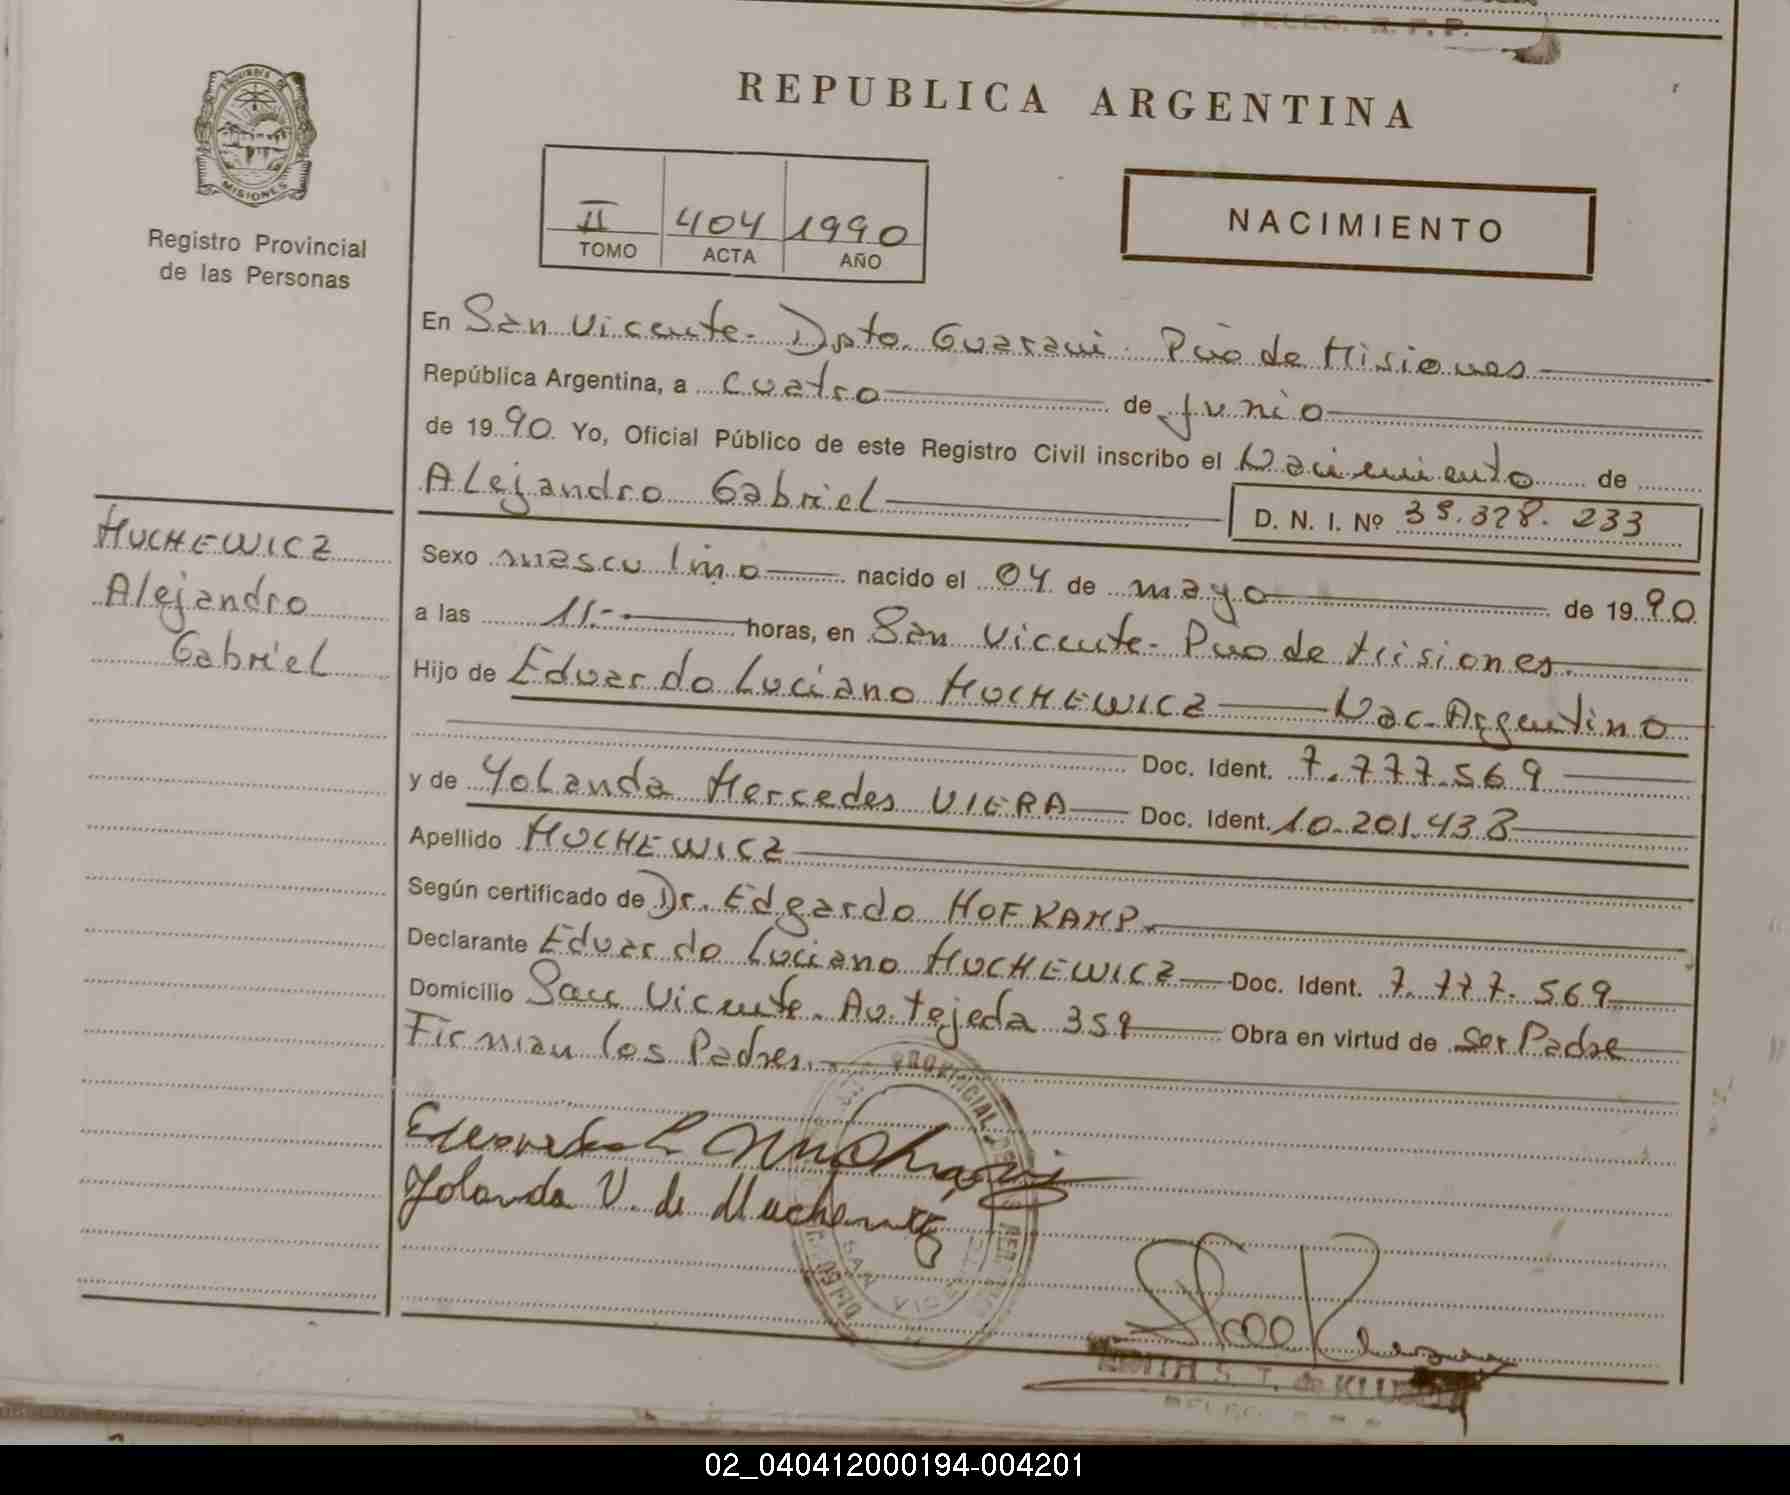 REPUBLICA ARGENTINA
PROVINCIA DE
MISIONES
Registro Provincial
de las Personas
II 404 1990
TOMO ACTA AÑO
NACIMIENTO
En San Vicente - Dpto. Guarani - Pcia de Misiones
República Argentina, a cuatro de junio
de 1990 Yo, Oficial Público de este Registro Civil inscribo el Nacimiento de
Alejandro Gabriel
D. N. I. Nº 35.328.233
HUCHEWICZ
Alejandro
Gabriel
Sexo masculino nacido el 04 de mayo de 1990
a las 11.- horas, en San Vicente - Pcia de Misiones.
Hijo de Eduardo Luciano HUCHEWICZ Nac. Argentino
Doc. Ident. 7.777.569
y de Yolanda Mercedes VIERA Doc. Ident. 10.201.438
Apellido HUCHEWICZ
Según certificado de Dr. Edgardo HOFKAMP.
Declarante Eduardo Luciano HUCHEWICZ Doc. Ident. 7.777.569
Domicilio San Vicente. Av. Tejeda 359 Obra en virtud de Ser Padre
Firman los Padres.
Yolanda V. de
PROVINCIAL DE
SAN VICENTE
EDITH S. T. de
02_040412000194-004201